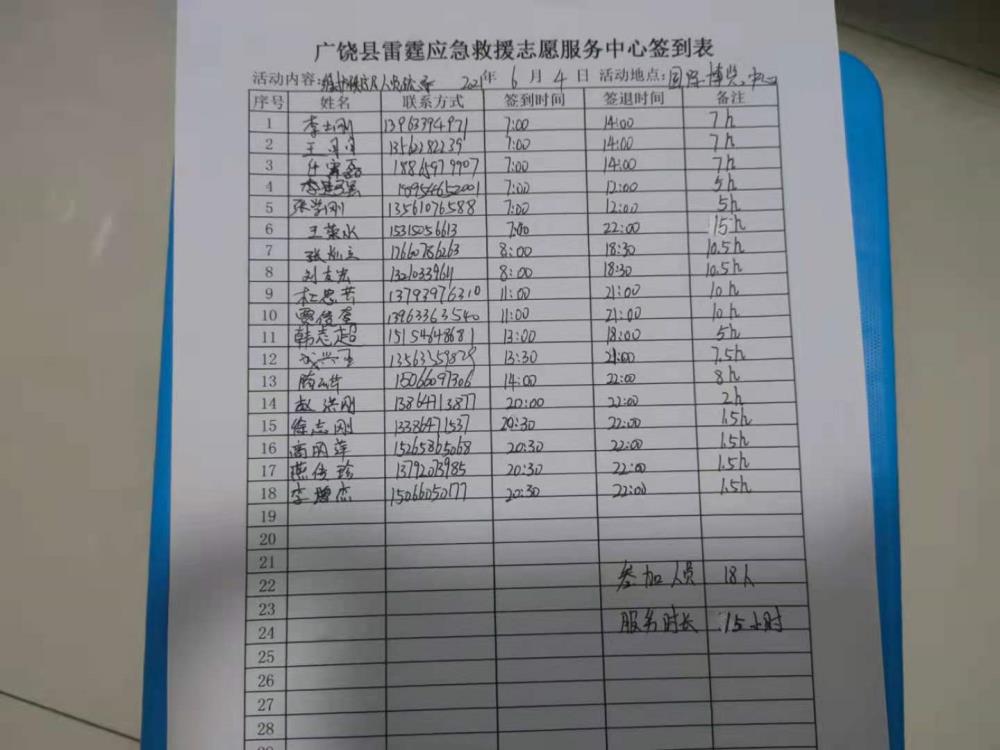 广饶县雷霆应急救援志愿服务中心签到表
活动内容: 2021年 6 月 4 日 活动地点:国际博览中心
序号 姓名 联系方式 签到时间 签退时间 备注
1 李志刚 13963394971 7:00 14:00 7h
2 王 13562282239 7:00 14:00 7h
3 7:00 14:00 7h
4 7:00 12:00 5h
5 张学刚 13561076588 7:00 12:00 5h
6 王荣水 15315056613 7:00 22:00 15h
7 17660786263 8:00 18:30 10.5h
8 刘友宏 13210339611 8:00 18:30 10.5h
9 杜忠芸 13793976310 11:00 21:00 10h
10 13963363540 11:00 21:00 10h
11 韩志超 15154648681 13:00 18:00 5h
12 13:30 21:00 7.5h
13 15066097306 14:00 22:00 8h
14 赵洪刚 13864713877 20:00 22:00 2h
15 徐志刚 13386471537 20:30 22:00 1.5h
16 高丽萍 15265865068 20:30 22:00 1.5h
17 燕传珍 13792073985 20:30 22:00 1.5h
18 李增杰 15066050177 20:30 22:00 1.5h
19
20
21
22 参加人员 18人
23
24 服务时长:15小时
25
26
27
28